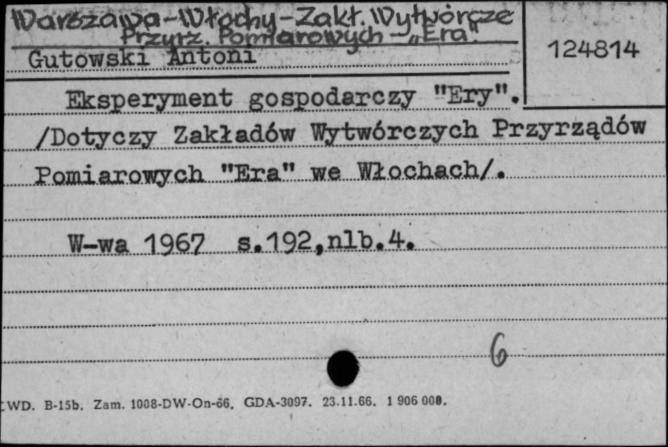 Warszawa-Włochy-Zakł. Wytwórcze
Przyrz. Pomiarowych - „Era"
Gutowski Antoni
124814
Eksperyment gospodarczy "Ery".
/Dotyczy Zakładów Wytwórczych Przyrządów
Pomiarowych "Era" we Włochach/.
W-wa 1967 s.192,nlb.4.
6
LWD. B-15b. Zam. 1008-DW-On-66. GDA-3097. 23.11.66. 1 906 000.